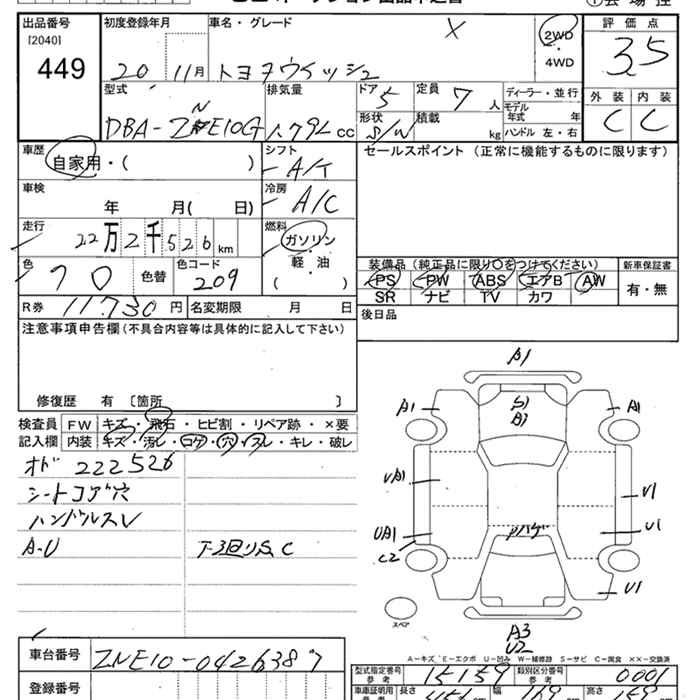 出品番号 初度登録年月 車名・グレード 評価点
[2040] 449 20 11月 トヨタウィッシュ X 2WD・4WD 3.5
型式 排気量 ドア 5 定員 7人 ディーラー・並行 外装 内装
DBA-ZNE10G 1.79L cc 形状 S/W 積載 kg モデル年式 年 ハンドル 左・右 C C
車歴 自家用・( ) シフト A/T セールスポイント (正常に機能するものに限ります)
車検 年 月( 日) 冷房 A/C
走行 22万2千526km 燃料 ガソリン・軽・油 ( )
色 クロ 色替 色コード 209 装備品 (純正品に限り○をつけてください) 新車保証書
PS PW ABS エアB AW 有・無
SR ナビ TV カワ
R券 11,730円 名変期限 月 日 後日品
注意事項申告欄(不具合内容等は具体的に記入して下さい)
修復歴 有 〔箇所 〕
検査員 FW キズ・飛石・ヒビ割・リペア跡・×要
記入欄 内装 キズ・汚レ・コゲ・穴・スレ・キレ・破レ
オド 222526
シートコゲ穴
ハンドルスレ
A・U
下廻りS C
A1
A1 S1 A1
A3
UA1 U1
UA1 ハゲ U1
C2
U1
スペア A3
U2
A-キズ E-エクボ U-凹み W-補修跡 S-サビ C-腐食 ××-交換済
車台番号 ZNE10-0426387 型式指定番号 参考 15159 類別区分番号 参考 0001
登録番号 車庫証明用 長さ 幅 高さ